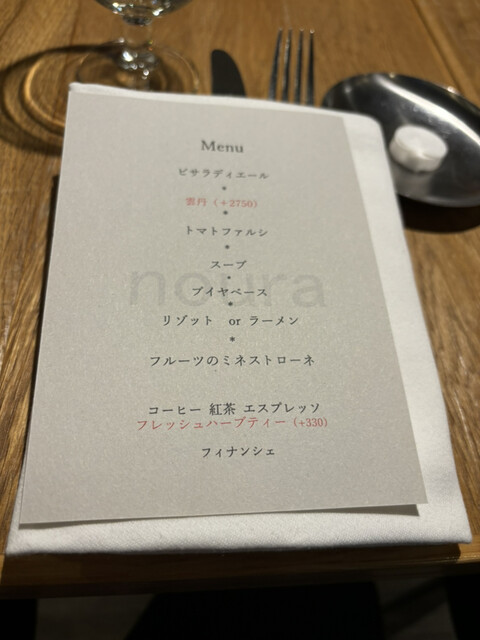 Menu
ピサラディエール
*
雲丹（+2750）
*
トマトファルシ
*
スープ
*
ブイヤベース
*
リゾット or ラーメン
*
フルーツのミネストローネ
コーヒー 紅茶 エスプレッソ
フレッシュハーブティー（+330）
フィナンシェ